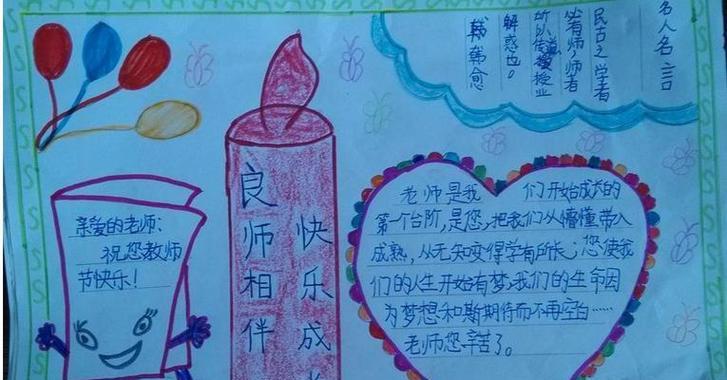 名人名言
民古之学者
必有师，师者
所以传道授业
解惑也。
韩韩愈
亲爱的老师：
祝您教师
节快乐！
良师相伴
快乐成长
老师是我 们开始成长的
第一个台阶，是您，把我们从懵懂带入
成熟，从无知变得学有所长；您使我
们的人生开始有梦，我们的生命因
为梦想和期待而不再空白……
老师您辛苦了。